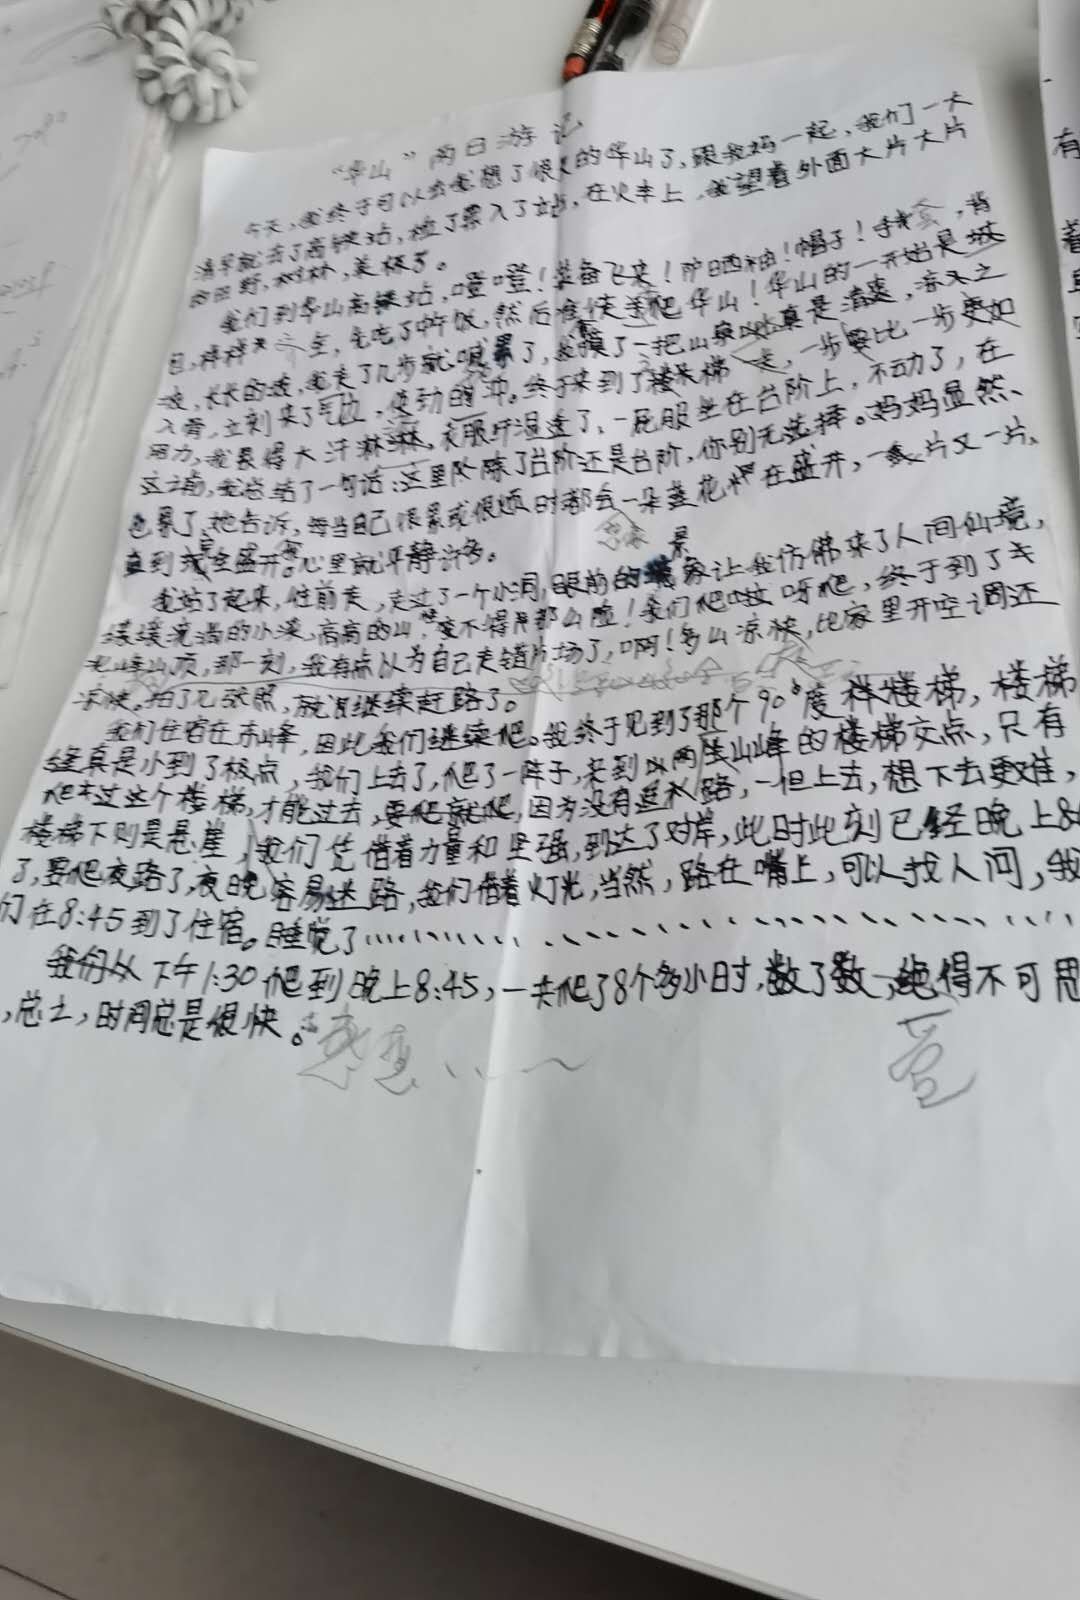 “华山”两日游记
今天，我终于可以去我想了很久的华山了，跟我妈一起，我们一大
清早就去了高铁站，检了票入了站，在火车上，我望着外面大片大片
的田野，树林，美极了。
我们到华山高铁站，噔噔！装备飞来！防晒袖！帽子！手套，背
包，样样，先吃了午饭，然后准快去爬华山！华山的一开始是坡
坡，长长的坡，我走了几步就喊累了，我摸了一把山泉水真是清爽，凉入之
入骨，立刻来了气力，使劲的冲。终于来到了楼梯，一步要比一步更如
用力，我累得大汗淋淋，衣服纤湿透了，一屁服坐在台阶上，不动了，在
这之前，我总结了一句话：这里除了台阶还是台阶，你别无选择。妈妈显然
也累了，她告诉，每当自己很累或很烦时都会一朵莲花在盛开，一片又一片，
直到完全盛开。心里就平静许多。
我站了起来，往前走，走过了一个小洞，眼前的景象让我仿佛来了人间仙境，
缓缓流淌的小溪，高高的山，要不得那么险！我们爬呀爬呀爬，终于到了
北峰山顶，那一刻，我有点以为自己走错片场了，啊！多山凉快，比家里开空调还
凉快。拍了几张照，就继续赶路了。
我们住宿在东峰，因此我们继续爬。我终于见到了那个90°度样楼梯，楼梯
缝真是小到了极点，我们上去了，爬了一阵子，来到两座山峰的楼梯交点，只有
爬过这个楼梯，才能过去，要爬就爬，因为没有退路，一但上去，想下去更难，
楼梯下则是悬崖，我们凭借着力量和坚强，到达了对岸，此时此刻已经晚上8
了，要爬夜路了，夜晚容易迷路，我们借着灯光，当然，路在嘴上，可以找人问，我
们在8:45到了住宿。睡觉了……………………
我们从下午1:30爬到晚上8:45，一共爬了8个多小时，数了数，绝得不可思
，总之，时间总是很快。
感想……